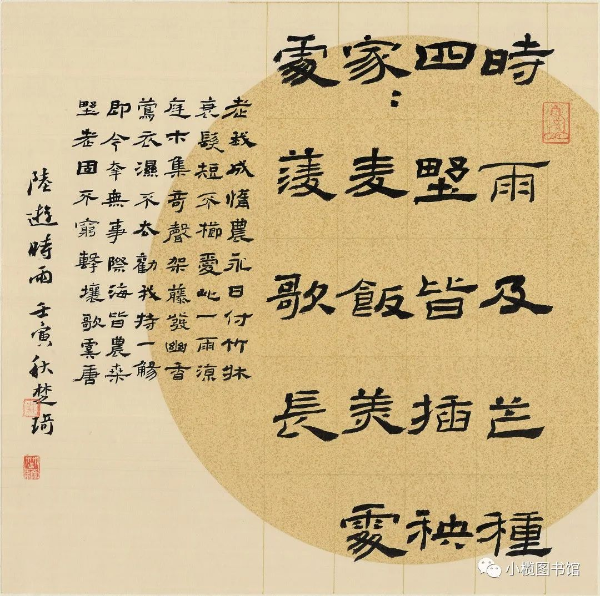 時雨及芒種
四野皆插秧
家〻麦飯美處
處菱歌長
老我成惰農永日付竹牀
衰髮短不櫛愛此一雨涼
庭木集奇聲架藤發幽香
鶯衣濕不去勸我持一觴
即今幸無事際海皆農桑
野老固不窮擊壤歌虞唐
陸遊時雨 壬寅秋楚琦
小榄图书馆